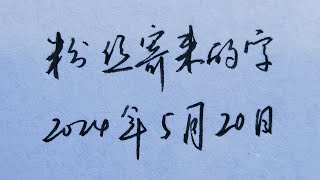 粉丝寄来的字
2024年5月20日